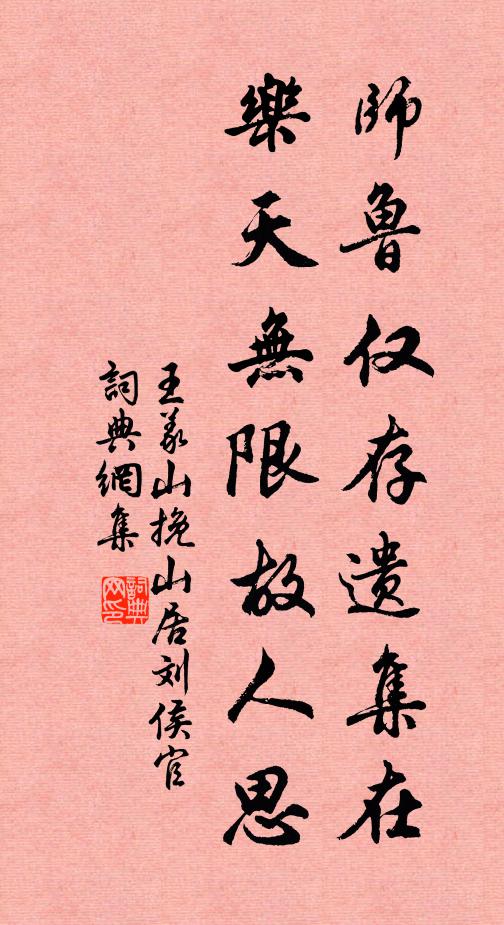 師魯仅存遗集在
樂天無限故人思
王义山挽山居刘侯官
詞典網集
詞典网印